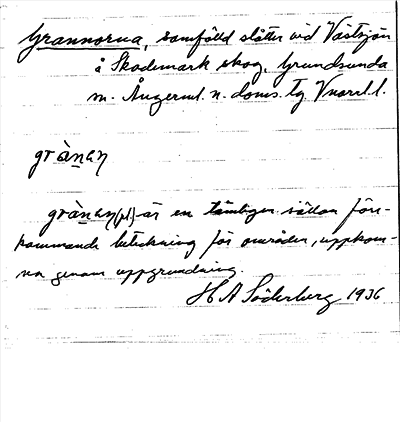 Grannorna, samfälld slåtter vid Västsjön
å Skademark skog, Grundsunda
m. Ångerml. n. doms. tg
grànay
grànay (pl) är en tämligen sällan före-
kommande beteckning för områden, uppkom-
na genom uppgrundning.
H A Söderberg 1936